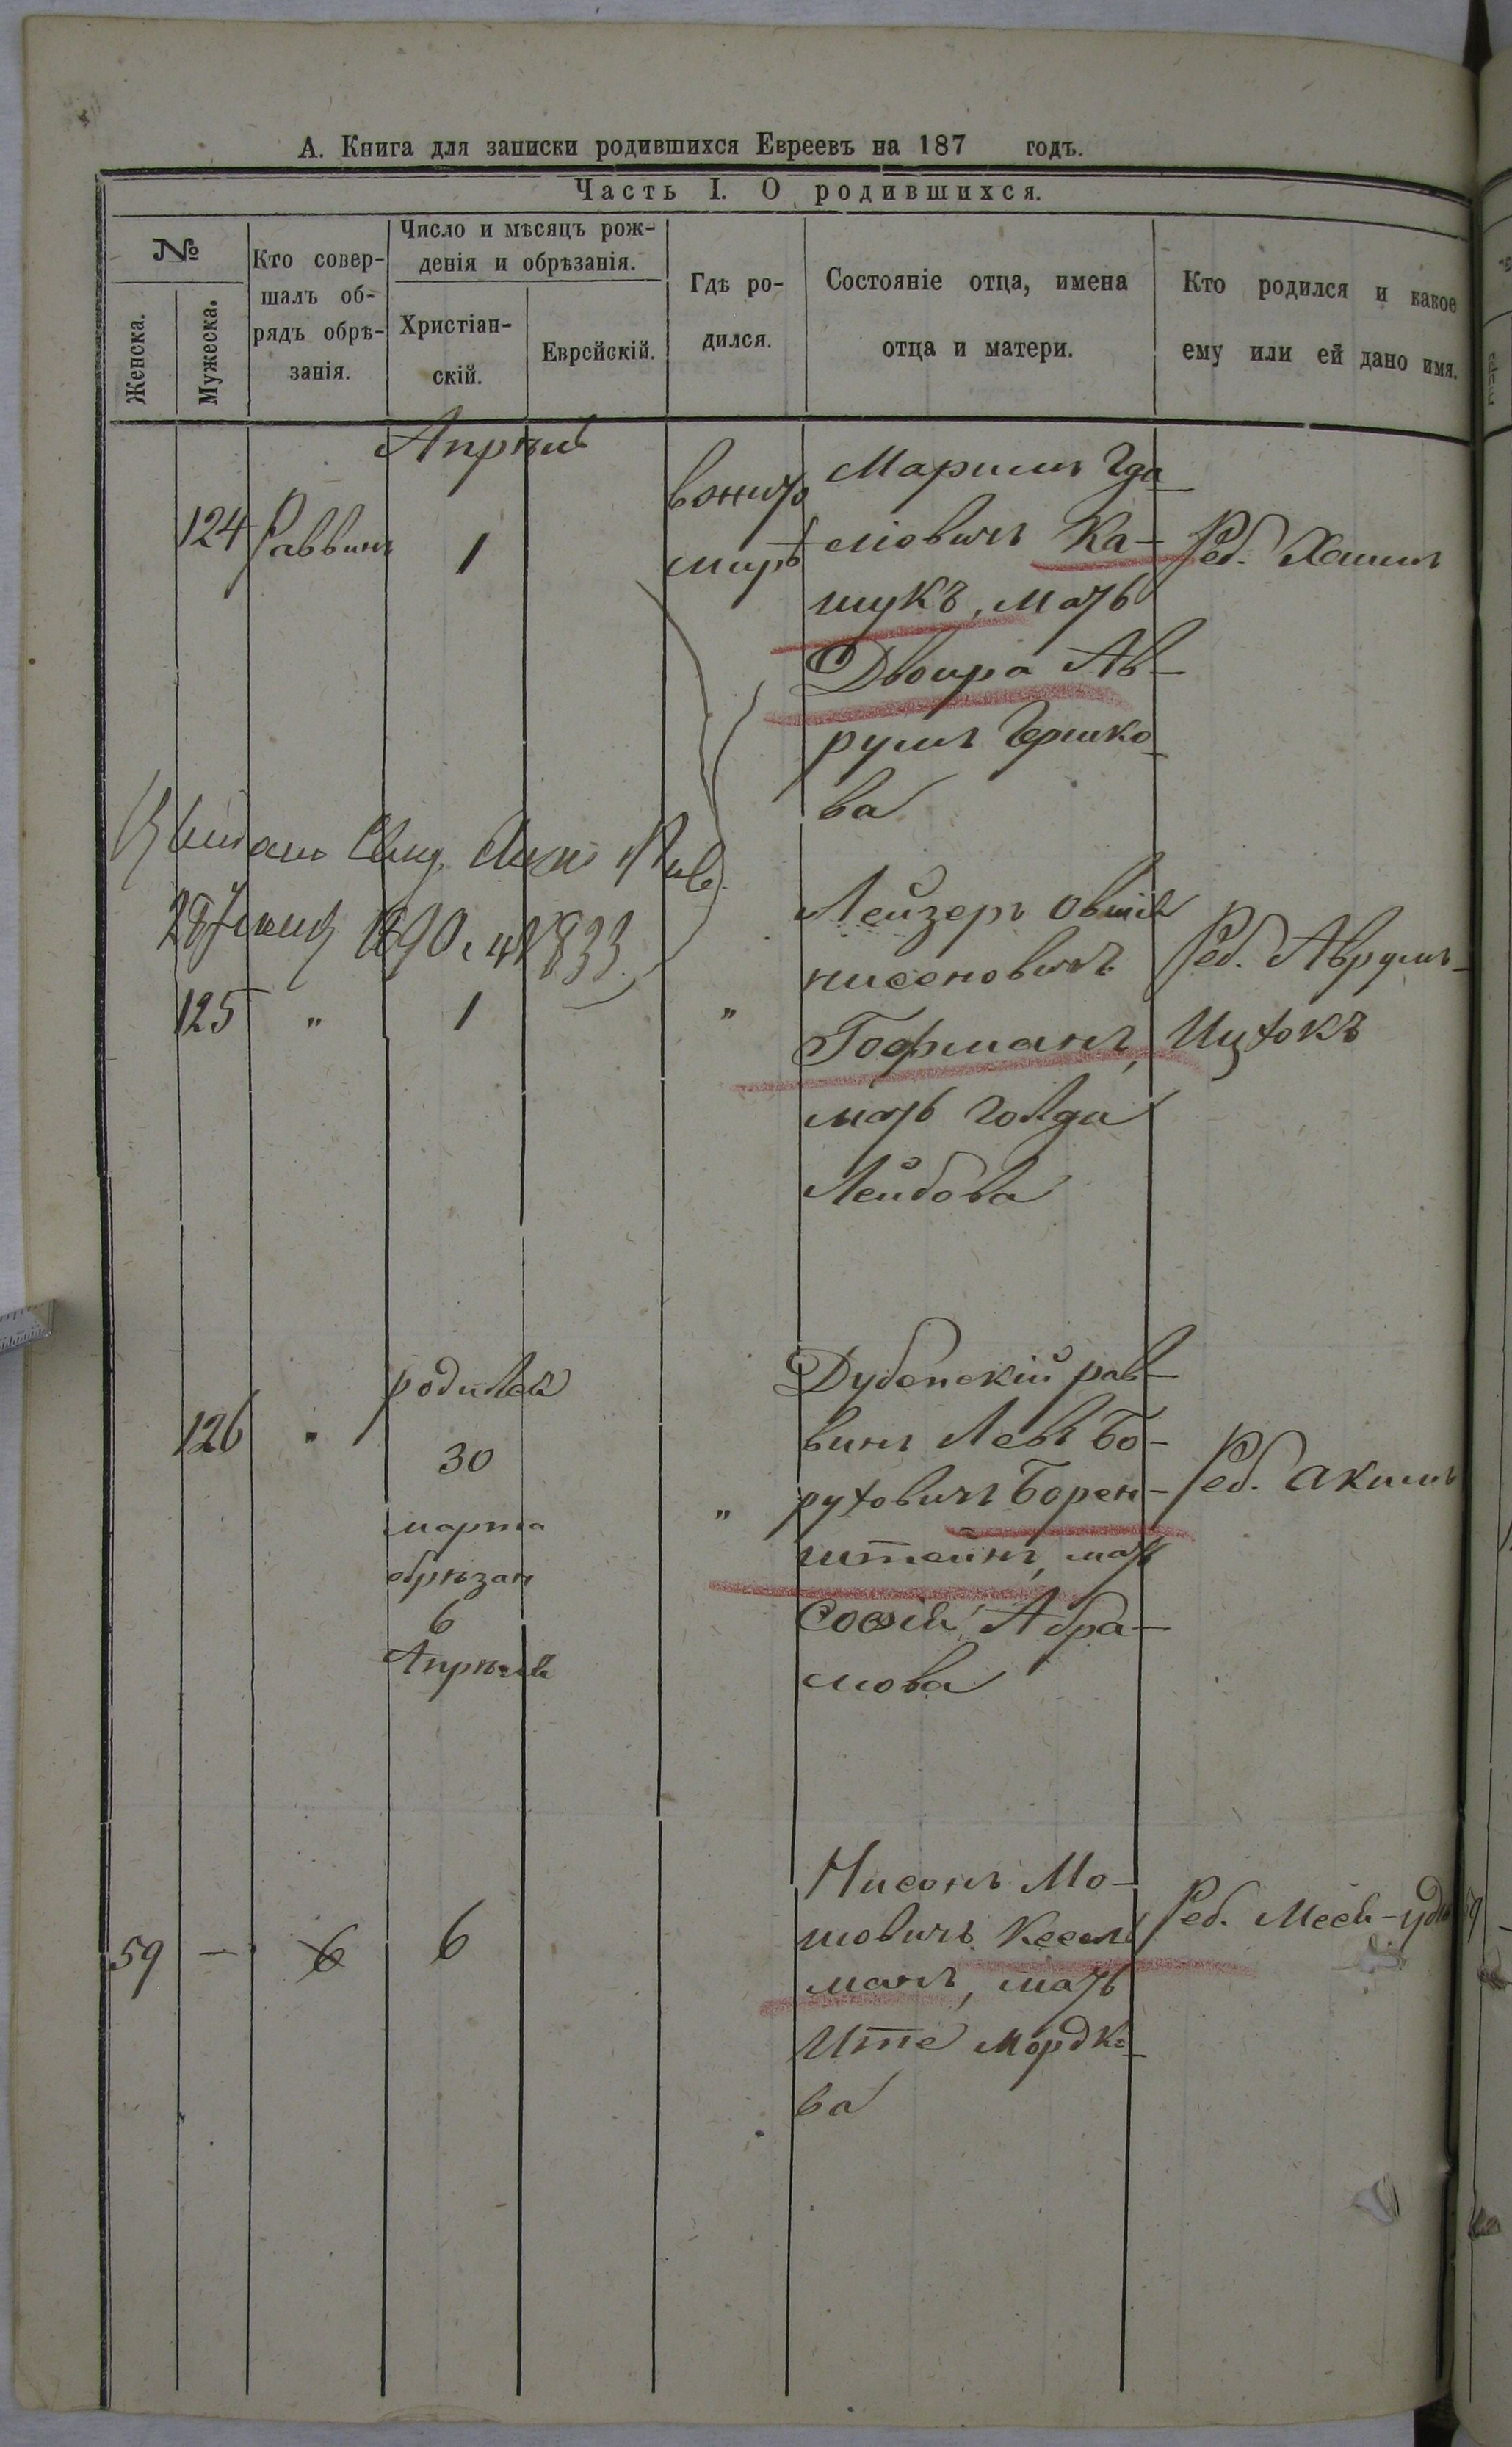 А. Книга для записки родившихся Евреевъ на 187 годъ.
Часть I. О родившихся.
№
Женска.
Мужеска.
Кто совер-
шалъ об-
рядъ обрѣ-
занія.
Число и мѣсяцъ рож-
денія и обрѣзанія.
Христіан-
скій.
Еврейскій.
Гдѣ ро-
дился.
Состояніе отца, имена
отца и матери.
Кто родился и какое
ему или ей дано имя.
Апрѣль
124 Раввинъ 1
вжито
мирѣ
Гда
ліовичъ Ка-
шукъ, мать
Двойра Ав-
румъ Гершко
ва
Реб. Хаимъ
28
1890 г. № 833
125 " 1 "
Лейзеръ Овшія
нисеновичъ
Гофманъ,
мать Голда
Лейбова
Реб. Аврумъ-
Ицхокъ
126 "
родился
30
марта
обрѣзан
6
Апрѣля
"
Дубенскій рав-
винъ Левъ Бо-
руховичъ Борен-
штейнъ, мать
Софія Абра-
мова
Реб. Акимъ
59 — 6 6
Нисонъ Мо-
шовичъ Кесель
манъ, мать
Ите Мордко
ва
Реб.